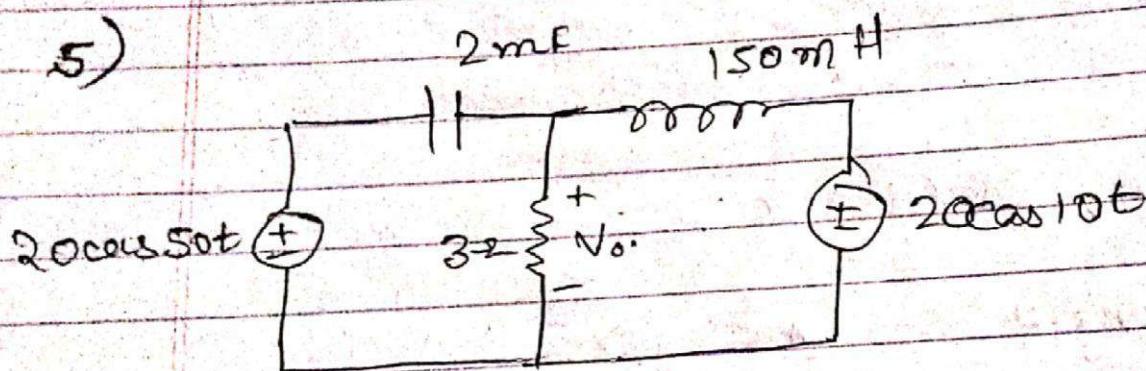 5)
2mF
150mH
20cos50t
+
3Ω
Vo
-
20cos10t